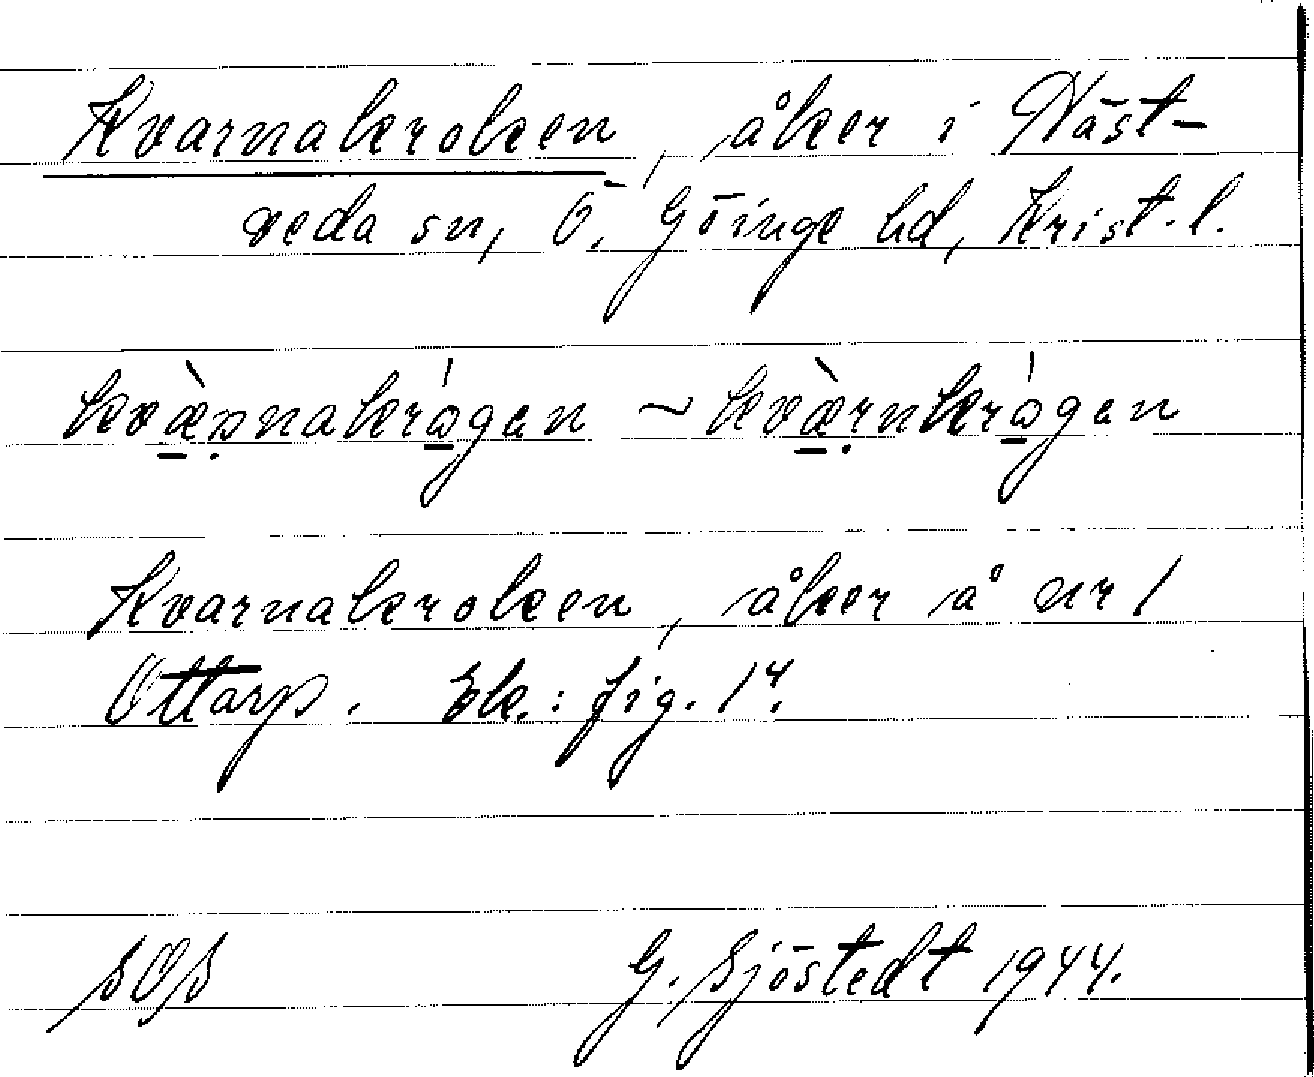 Kvarnakroken, åker i Näst-
veda sn, Ö. Göinge hd, Krist. l.
kvæ̀rnakrågen ~ kvæ̀rnkrågen
Kvarnakroken, åker å nr 1
Ottarp. Ek.: fig. 14.
sOs G. Sjöstedt 1944.